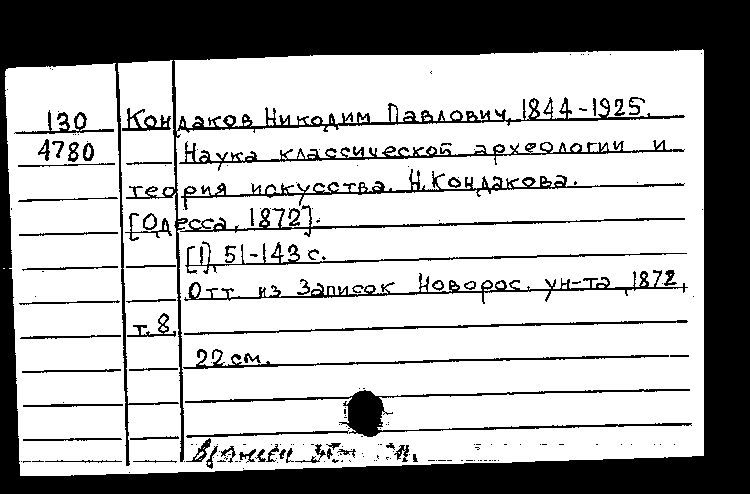 130 Кондаков, Никодим Павлович, 1844-1925.
4780 Наука классической археологии и
теория искусства. Н. Кондакова.
[Одесса, 1872].
[1], 51-143 с.
Отт. из Записок Новорос. ун-та, 1872,
т. 8.
22 см.